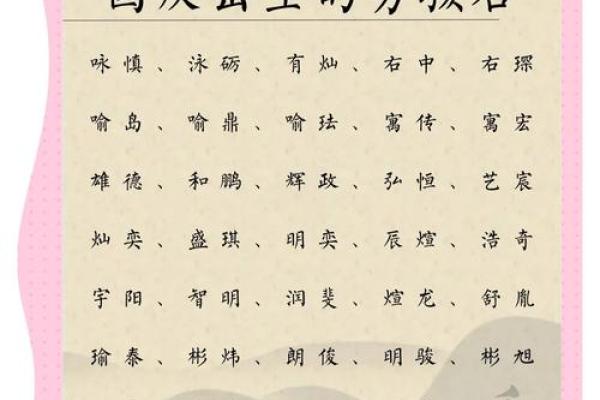 国庆出生的男孩名
咏慎、泳砺、有灿、右中、右琛
喻岛、喻鼎、喻珐、寓传、寓宏
雄德、和鹏、辉政、弘恒、艺宸
灿奕、盛琪、明奕、辰煊、浩奇
宇阳、智明、润斐、煊龙、舒胤
瑜泰、彬炜、朗俊、明骏、彬旭